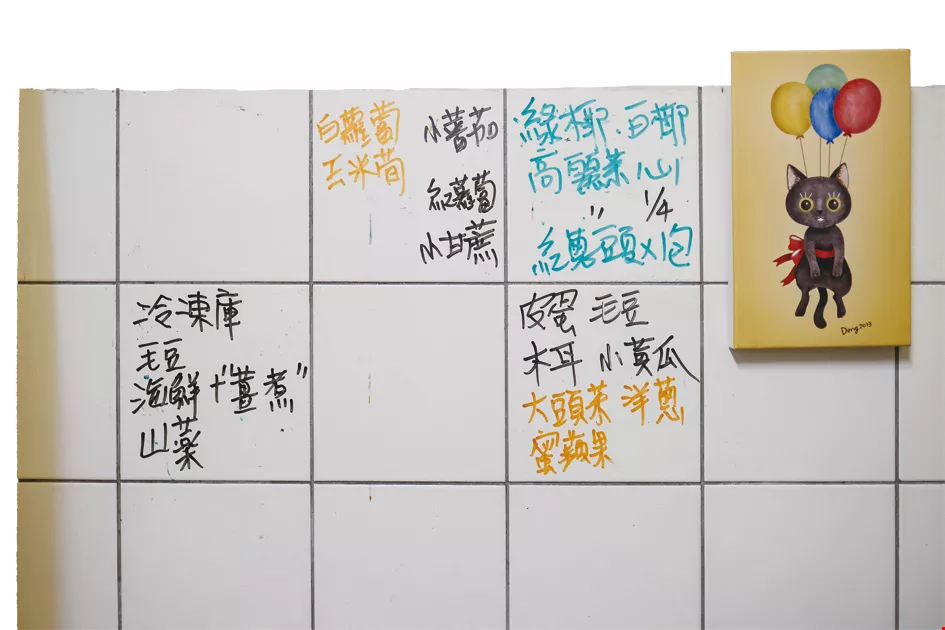 白蘿蔔
玉米筍
小蕃茄
紅蘿蔔
小甘蔗
綠椰.白椰
高麗菜 心
〃 1/4
紅蔥頭X1包
冷凍庫
毛豆
海鮮+"薑煮"
山藥
皮蛋 毛豆
木耳 小黃瓜
大頭菜 洋蔥
蜜蘋果
Deng 2013